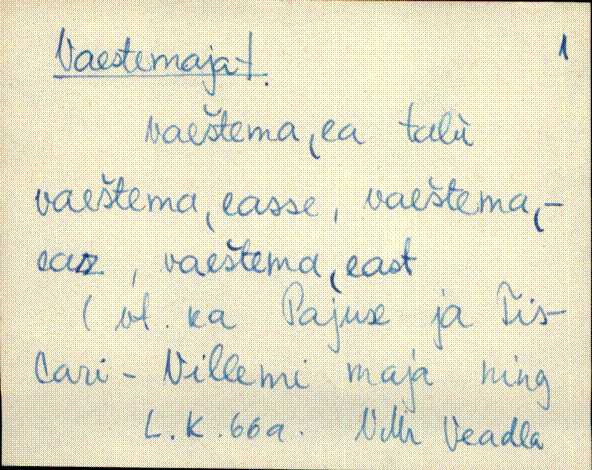 Vaestemaja-t. 1
vaeštema,ea talù
vaeštema,easse, vaeštema,-
eaz, vaeštema,east
(vt. ka Pajuse ja Tis-
cari-Villemi maja ning
L.K. 66a. VMr Veadla